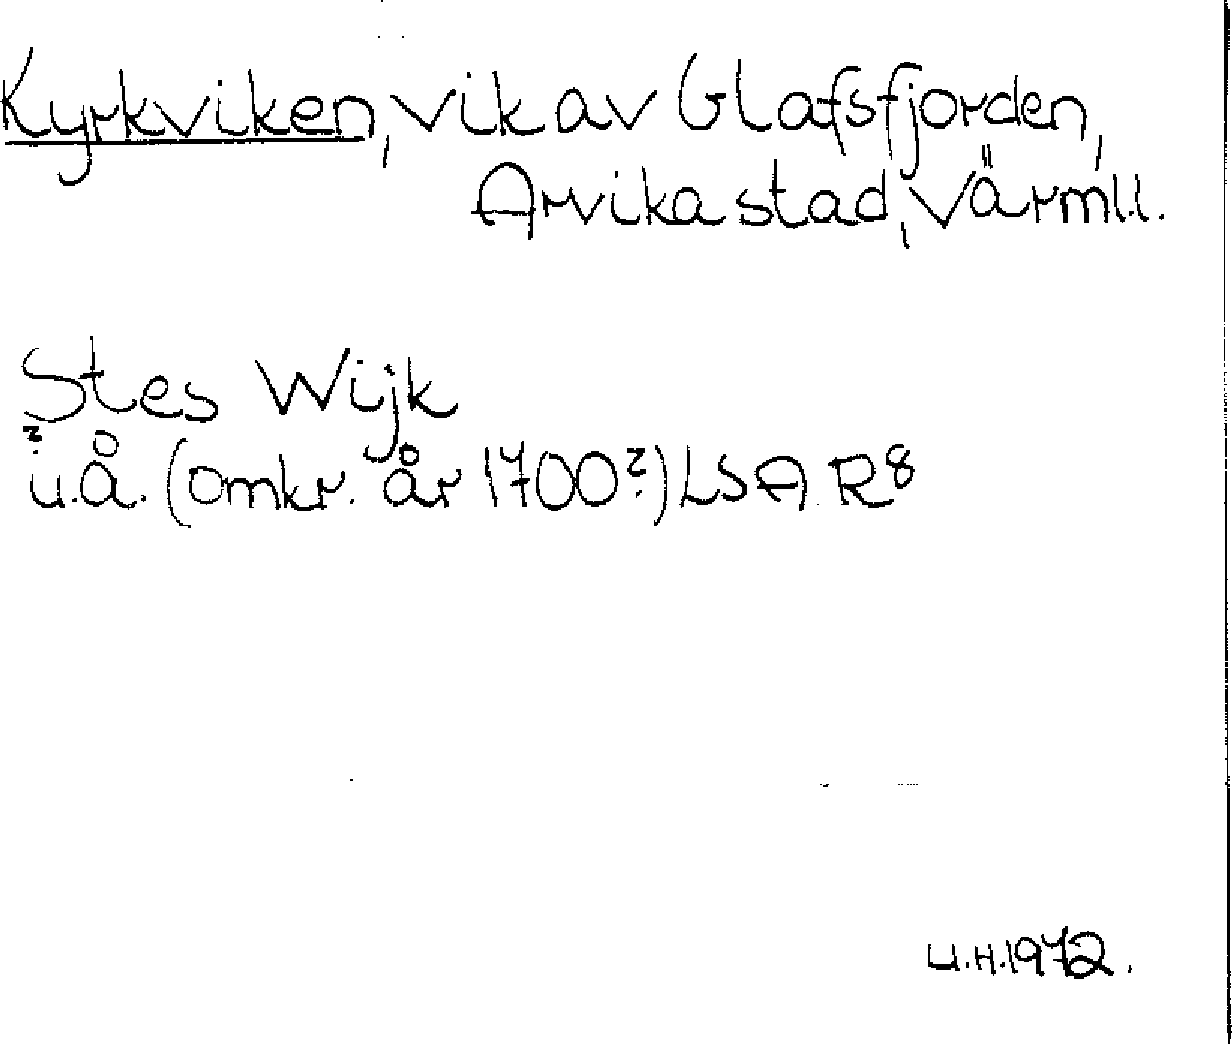 Kyrkviken, vik av Glafsfjorden,
Arvika stad, Värml.l.
Stes Wijk
?
u.å. (omkr. år 1700?) LSA R8
U.H.1972.